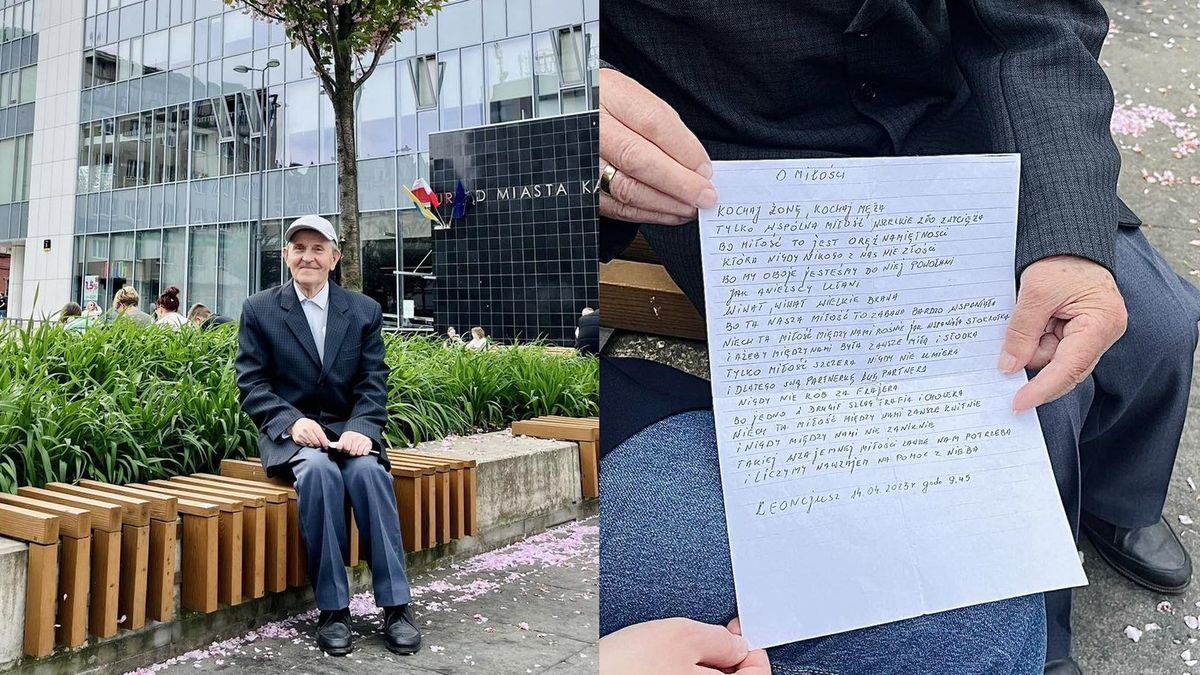 URZĄD MIASTA KA
O MIŁOŚCI
KOCHAJ ŻONĘ, KOCHAJ MĘŻA
TYLKO WSPÓLNA MIŁOŚĆ WSZELKIE ZŁO ZWYCIĘŻA
BO MIŁOŚĆ TO JEST ORĘŻ NAMIĘTNOŚCI
KTÓRA NIGDY NIKOGO Z NAS NIE ZŁOŚCI
BO MY OBOJE JESTEŚMY DO NIEJ POWOŁANI
JAK ANIELSCY UŁANI
WIWAT, WIWAT WIELKIE BRAWA
BO TA NASZA MIŁOŚĆ TO ZABAWA BARDZO WSPANIAŁA
NIECH TA MIŁOŚĆ MIĘDZY NAMI ROŚNIE JAK WSPANIAŁA STOKROTKA
I AŻEBY MIĘDZY NAMI BYŁA ZAWSZE MIŁA I SŁODKA
TYLKO MIŁOŚĆ SZCZERA NIGDY NIE UMIERA
I DLATEGO SWĄ PARTNERKĘ LUB PARTNERA
NIGDY NIE RÓB ZA FRAJERA
BO JEDNO I DRUGIE SZLAG TRAFIA I CHOLERA
NIECH TA MIŁOŚĆ MIĘDZY NAMI ZAWSZE KWITNIE
I NIGDY MIĘDZY NAMI NIE ZANIKNIE
TAKIEJ WZAJEMNEJ MIŁOŚCI ZAWSZE NAM POTRZEBA
I LICZYMY NAWZAJEM NA POMOC Z NIEBA
LEONCJUSZ 14.04.2023r godz 9.45